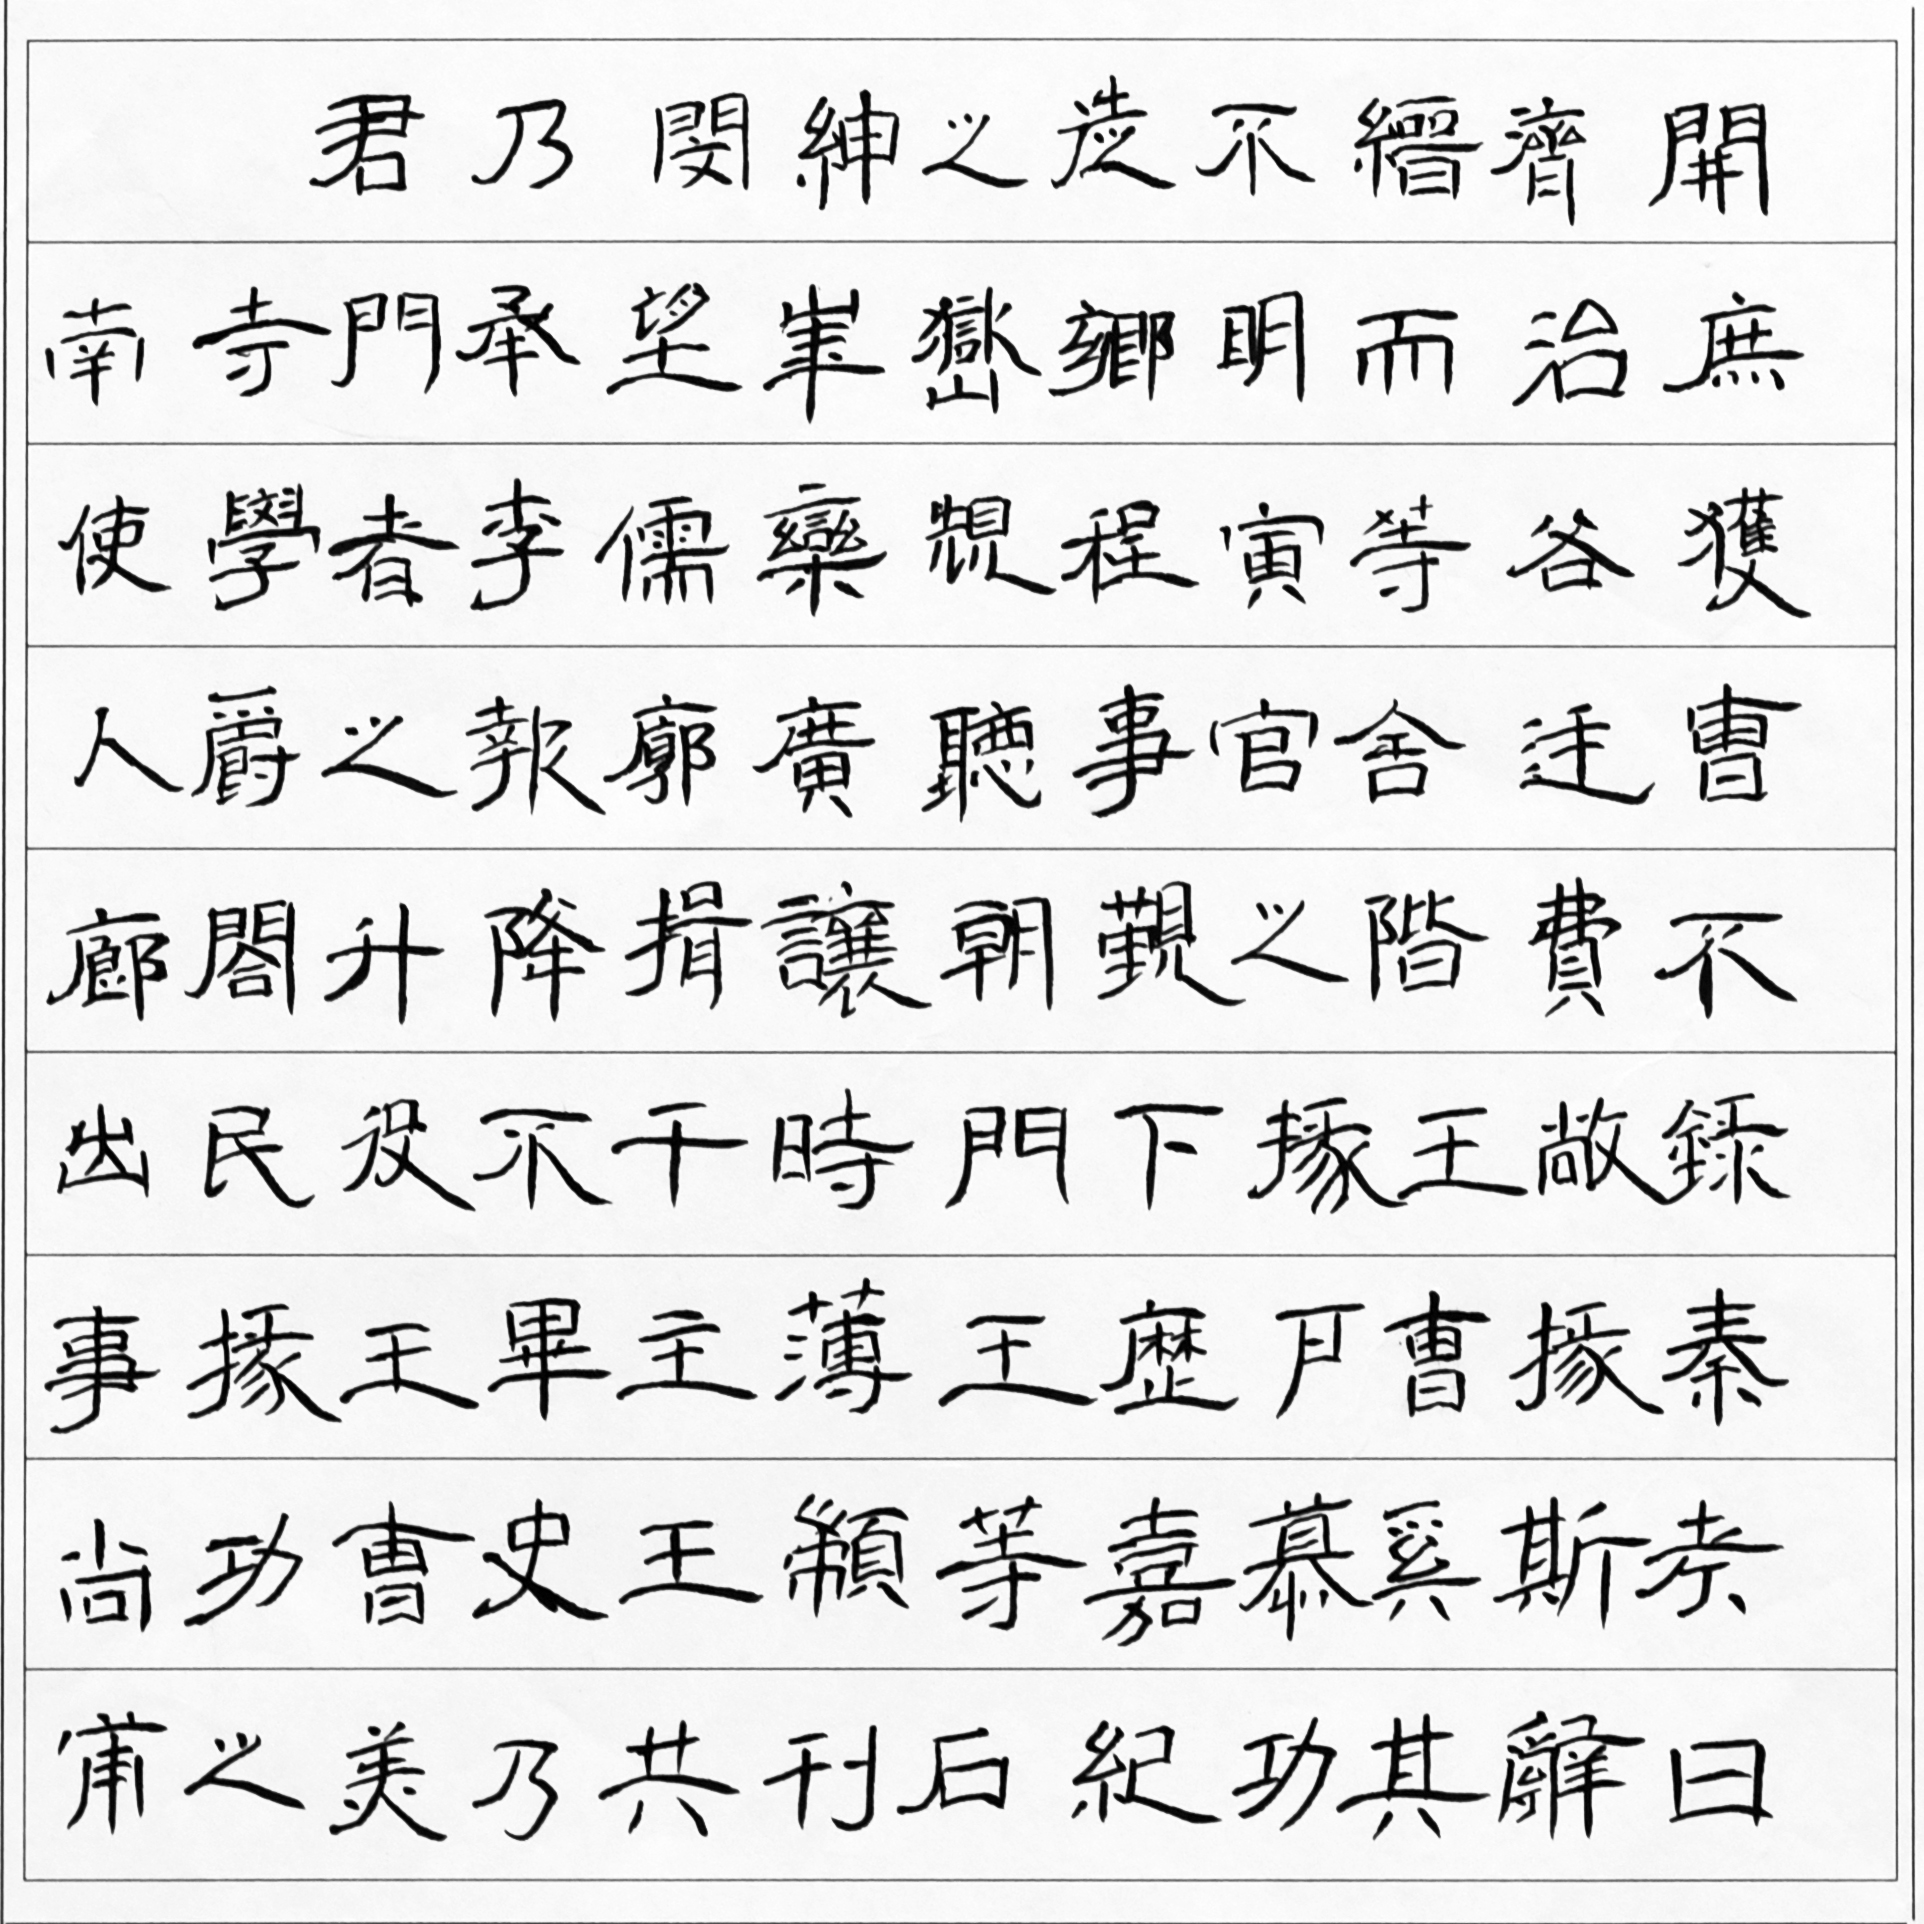 君乃閔紳之徒不縉濟開
南寺門承望崋嶽鄉明而治庶
使學者李儒欒規程寅等各獲
人爵之報廓廣聽事官舍廷曹
廊閣升降揖讓朝覲之階費不
出民役不干時門下掾王敞錄
事掾王畢主薄王歷戶曹掾秦
尚功曹史王顓等嘉慕奚斯考
甫之美乃共刊石紀功其辭曰